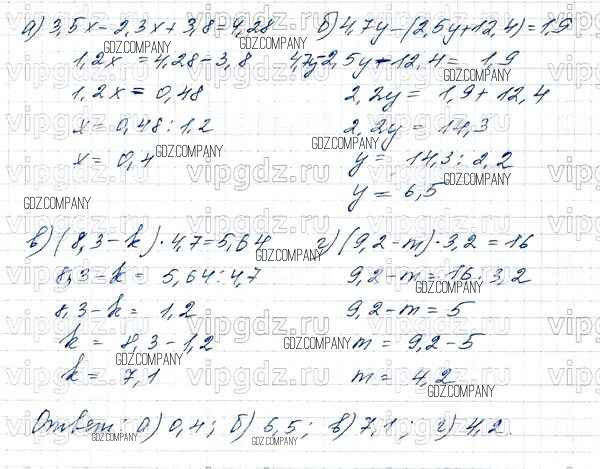 а) 3,5x - 2,3x + 3,8 = 4,28
1,2x = 4,28 - 3,8
1,2x = 0,48
x = 0,48 : 1,2
x = 0,4
б) 4,7y - (2,5y + 12,4) = 1,9
4,7y - 2,5y - 12,4 = 1,9
2,2y = 1,9 + 12,4
2,2y = 14,3
y = 14,3 : 2,2
y = 6,5
в) (8,3 - k) · 4,7 = 5,64
8,3 - k = 5,64 : 4,7
8,3 - k = 1,2
k = 8,3 - 1,2
k = 7,1
г) (9,2 - m) · 3,2 = 16
9,2 - m = 16 : 3,2
9,2 - m = 5
m = 9,2 - 5
m = 4,2
Ответ: а) 0,4; б) 6,5; в) 7,1; г) 4,2.
GDZ.COMPANY
vipgdz.ru